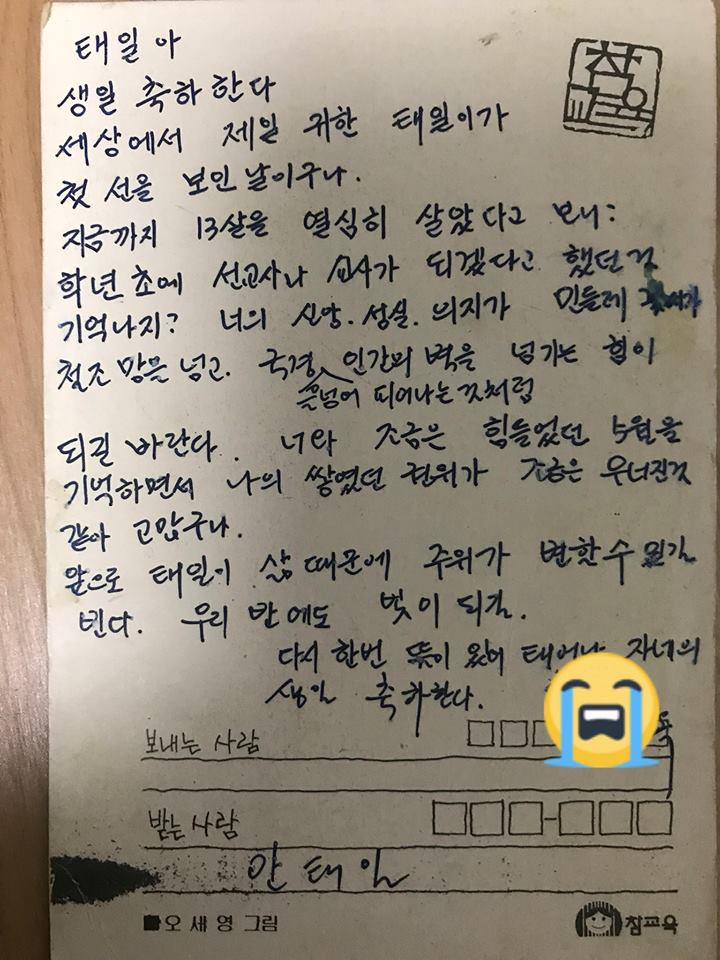 태일아
생일 축하 한다
세상에서 제일 귀한 태일이가
첫 선을 보인 날이구나.
지금까지 13살을 열심히 살았다고 보니:
학년 초에 선교사나 교사가 되겠다고 했던것
기억나지? 너의 신앙. 성실. 의지가 민들레
철조망을 넘고. 국경 인간의 벽을 넘기는 힘이
을넘어 피어나는것처럼
되길 바란다. 너와 조금은 힘들었던 5월을
기억하면서 나의 쌓였던 권위가 조금은 무너진것
같아 고맙구나.
앞으로 태일이 삶 때문에 주위가 변할수 있길
빈다. 우리 반에도 빛이 되길.
다시 한번 뜻이 있어 태어난 자네의
생일 축하한다.
보내는 사람
받는 사람
안태일
오세영 그림
참교육